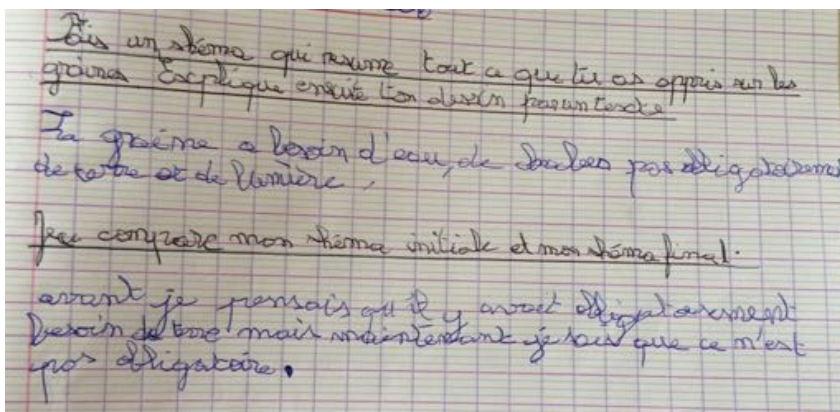 Fais un shéma qui résume tout ce que tu as appris sur les
graines Explique ensuite ton dessin par un texte
La graine a besoin d'eau, de pas obligatoirement
de terre et de lumière,
Je compare mon shéma initiale et mon shéma final.
avant je pensais qu'il y avait obligatoirement
besoin de terre mais maintenant je sais que ce n'est
pas obligatoire.